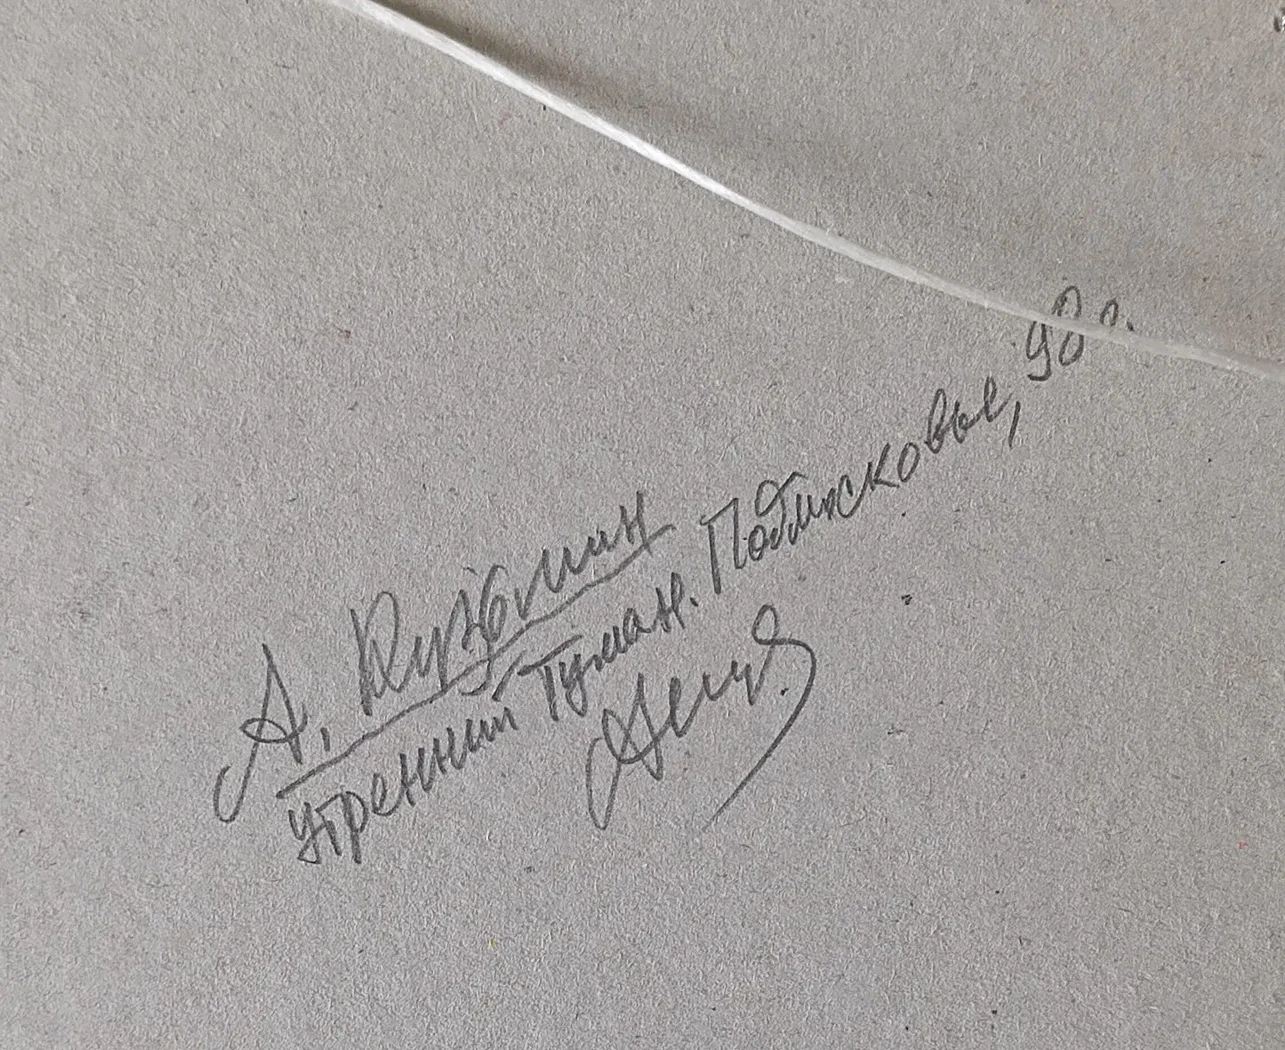 А. Кузьмин
Утренний туман. Подмосковье, 98 г.